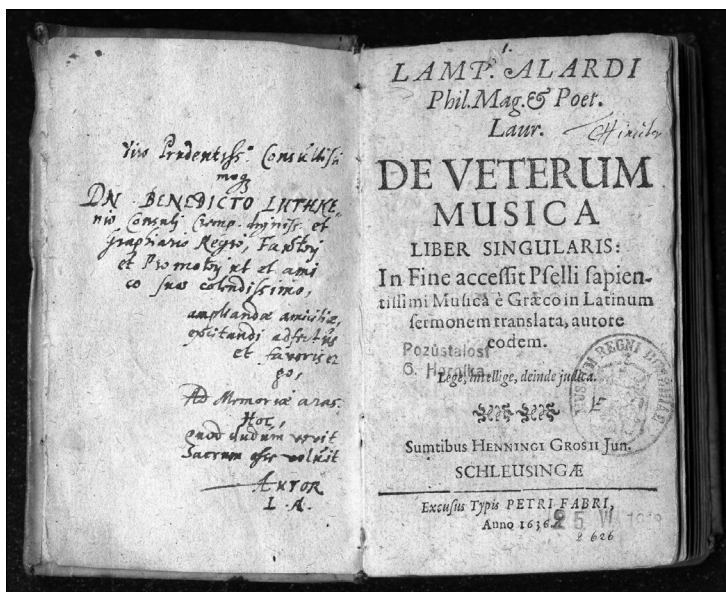 Viro Prudentiss.º Consultissi
moq
DN BENEDICTO LÜTHKE-
nio Consuli Cremp. digniss. et
Graphiario Regio, Fautori
et Promotori ut et ami
co suo colendissimo,
ampliandæ amicitiæ,
excitandi adfectus
et favoris er
go,
Ad Memoriæ aras
Hoc,
quod dudum vovit
Sacrum esse voluit
AUTOR
L. A.
1.
LAMP. ALARDI
Phil. Mag. & Poet.
Laur.
DE VETERUM
MUSICA
LIBER SINGULARIS:
In Fine accessit Pselli sapien-
tissimi Musica è Græco in Latinum
sermonem translata, autore
eodem.
Pozůstalost
O. Hornika
Lege, intellige, deinde judica.
MUSEUM REGNI BOHEMIAE
Sumtibus HENNINGI GROSII Jun.
SCHLEUSINGÆ
Excusus Typis PETRI FABRI,
Anno 1636.
25 VI
2 626